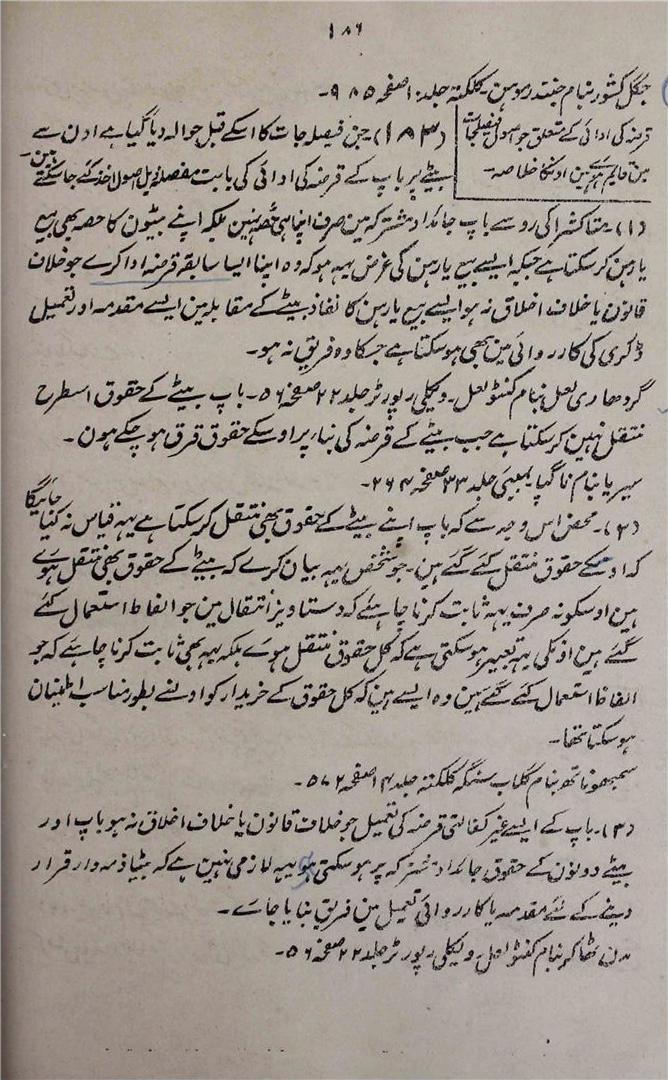 ۱۸۶
جگل کشور بنام جتندر موہن۔ کلکتہ جلد ۱۰ صفحہ ۹۸۵۔
قرضہ کی ادائی کے متعلق جو اصول فیصلجات
مین قایم ہوے ہین اونکا خلاصہ۔
(۱۸۳) جن فیصلہ جات کا اسکے قبل حوالہ دیا گیا ہے اون سے
بیٹے پر باپ کے قرضہ کی ادائی کی بابت مفصلہ ذیل اصول اخذ کئے جا سکتے ہین۔
(۱)۔ متاکشرا کی رو سے باپ جائداد مشترکہ مین صرف اپنا ہی حصہ نہین بلکہ اپنے بیٹون کا حصہ بھی بیع
یا رہن کر سکتا ہے جبکہ ایسے بیع یا رہن کی غرض یہہ ہو کہ وہ اپنا ایسا سابقہ قرضہ ادا کرے جو خلاف
قانون یا خلاف اخلاق نہ ہو ایسے بیع یا رہن کا نفاذ بیٹے کے مقابلہ مین ایسے مقدمہ اور تعمیل
ڈگری کی کارروائی مین بھی ہو سکتا ہے جسکا وہ فریق نہ ہو۔
گردھاری لعل بنام کنٹو لعل۔ ویکلی رپورٹر جلد ۲۲ صفحہ ۵۶۔ باپ بیٹے کے حقوق اسطرح
منتقل نہین کر سکتا ہے جب بیٹے کے قرضہ کی بناء پر اوسکے حقوق قرق ہو چکے ہون۔
سبریا بنام ناگپا بمبئی جلد ۳۳ صفحہ ۲۶۴۔
(۲)۔ محض اس وجہ سے کہ باپ اپنے بیٹے کے حقوق بھی منتقل کر سکتا ہے یہہ قیاس نہ کیا جائیگا
کہ اوسکے حقوق منتقل کئے گئے ہین۔ جو شخص یہہ بیان کرے کہ بیٹے کے حقوق بھی منتقل ہوے
ہین اوسکو نہ صرف یہہ ثابت کرنا چاہئے کہ دستاویز انتقال مین جو الفاظ استعمال کئے
گئے ہین اونکی یہہ تعبیر ہو سکتی ہے کہ کل حقوق منتقل ہوے بلکہ یہہ بھی ثابت کرنا چاہئے کہ جو
الفاظ استعمال کئے گئے ہین وہ ایسے ہین کہ کل حقوق کے خریدار کو اونسے بطور مناسب اطمینان
ہو سکتا تھا۔
سمبھوناتھ بنام گلاب سنگہ کلکتہ جلد ۱۴ صفحہ ۵۷۲۔
(۳)۔ باپ کے ایسے غیر کفالتی قرضہ کی تعمیل جو خلاف قانون یا خلاف اخلاق نہ ہو باپ اور
بیٹے دونون کے حقوق جائداد مشترکہ پر ہو سکتی ہے یہہ لازمی نہین ہے کہ بیٹا ذمہ دار قرار
دینے کے لئے مقدمہ یا کارروائی تعمیل مین فریق بنایا جاے۔
مدن ٹھاکر بنام کنٹو لعل۔ ویکلی رپورٹر جلد ۲۲ صفحہ ۵۶۔